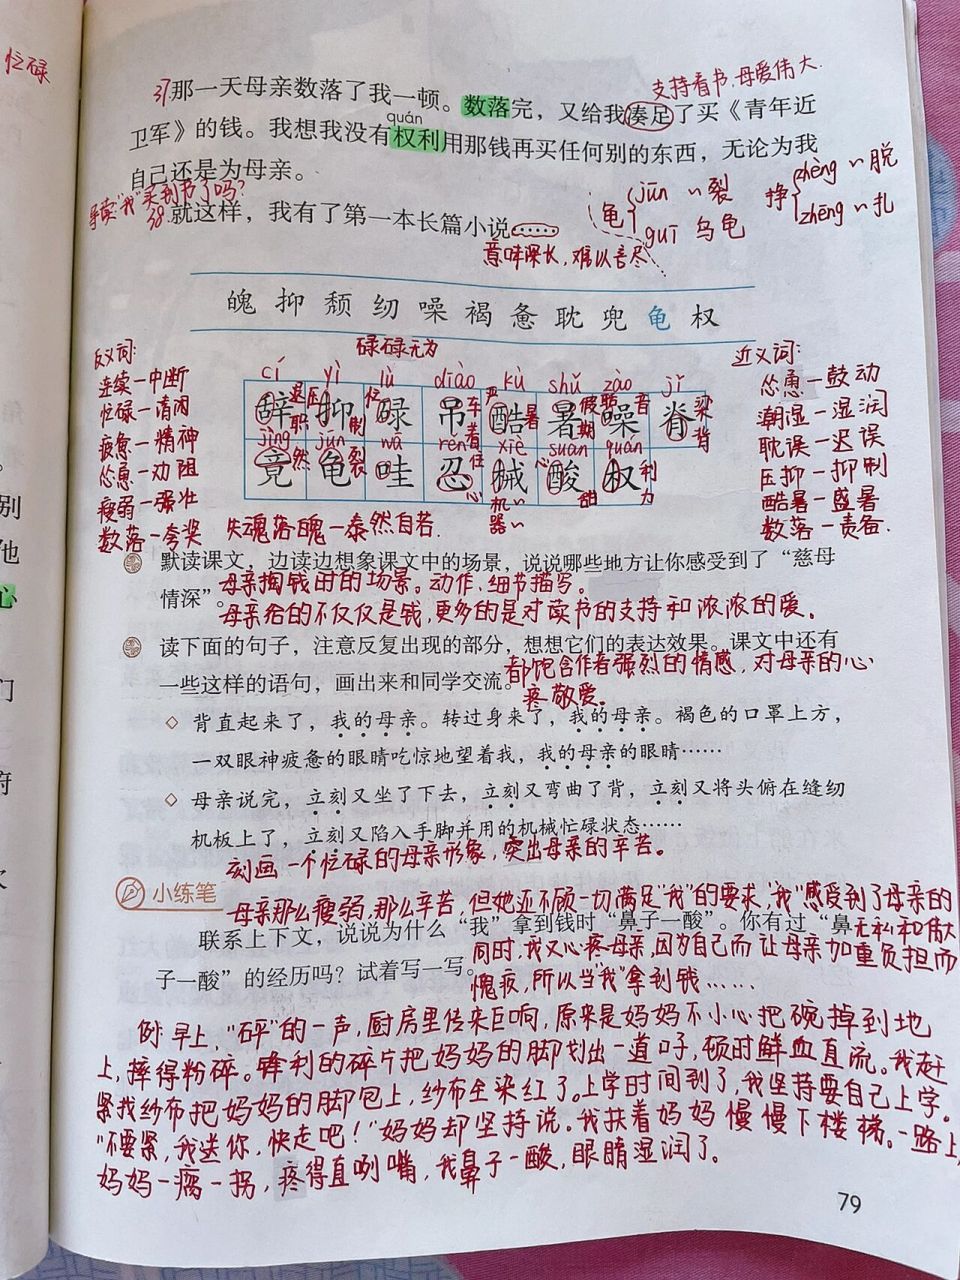 忙碌
37那一天母亲数落了我一顿。数落完，又给我凑足了买《青年近
支持看书，母爱伟大。
quán
卫军》的钱。我想我没有权利用那钱再买任何别的东西，无论为我
自己还是为母亲。
导读"我"买到书了吗？
38.就这样，我有了第一本长篇小说……
意味深长，难以言尽
龟 jūn ~裂
guī 乌龟
挣 zhèng ~脱
zhēng ~扎
魄 抑 颓 纫 噪 褐 惫 耽 兜 龟 权
碌碌无为
反义词:
连续—中断
忙碌—清闲
疲惫—精神
怂恿—劝阻
瘦弱—强壮
数落—夸奖 失魂落魄—泰然自若.
近义词:
怂恿—鼓动
潮湿—湿润
耽误—迟误
压抑—抑制
酷暑—盛暑
数落—责备.
cí yì lù diào kù shǔ zào jǐ
辞 抑 碌 吊 酷 暑 噪 脊
退职 压制 忙 车 严暑 假期 音 梁 背
jìng jūn wā rěn xiè suān quán
竟 龟 哇 忍 械 酸 权
然 裂 着 任 心 机~ 器~ 心 甜 利 力
默读课文，边读边想象课文中的场景，说说哪些地方让你感受到了“慈母
情深”。
母亲掏钱时的场景。动作、细节描写。
母亲给的不仅仅是钱，更多的是对读书的支持和浓浓的爱。
读下面的句子，注意反复出现的部分，想想它们的表达效果。课文中还有
一些这样的语句，画出来和同学交流。
都饱含作者强烈的情感，对母亲的心
疼敬爱。
◇ 背直起来了，我的母亲。转过身来了，我的母亲。褐色的口罩上方，
一双眼神疲惫的眼睛吃惊地望着我，我的母亲的眼睛……
◇ 母亲说完，立刻又坐了下去，立刻又弯曲了背，立刻又将头俯在缝纫
机板上了，立刻又陷入手脚并用的机械忙碌状态……
刻画一个忙碌的母亲形象，突出母亲的辛苦。
小练笔
母亲那么瘦弱，那么辛苦，但她还不顾一切满足"我"的要求，"我"感受到了母亲的
无私和伟大
联系上下文，说说为什么“我”拿到钱时“鼻子一酸”。你有过“鼻
子一酸”的经历吗？试着写一写。
同时，我又心疼母亲，因为自己而让母亲加重负担而
愧疚，所以当"我"拿到钱……
例:早上，"砰"的一声，厨房里传来巨响，原来是妈妈不小心把碗掉到地
上，摔得粉碎。锋利的碎片把妈妈的脚划出一道口子，顿时鲜血直流。我赶
紧找纱布把妈妈的脚包上，纱布全染红了。上学时间到了，我坚持要自己上学。
"不要紧，我送你，快走吧！"妈妈却坚持说。我扶着妈妈慢慢下楼梯。一路上，
妈妈一瘸一拐，疼得直咧嘴，我鼻子一酸，眼睛湿润了。
79
别
他
心
们